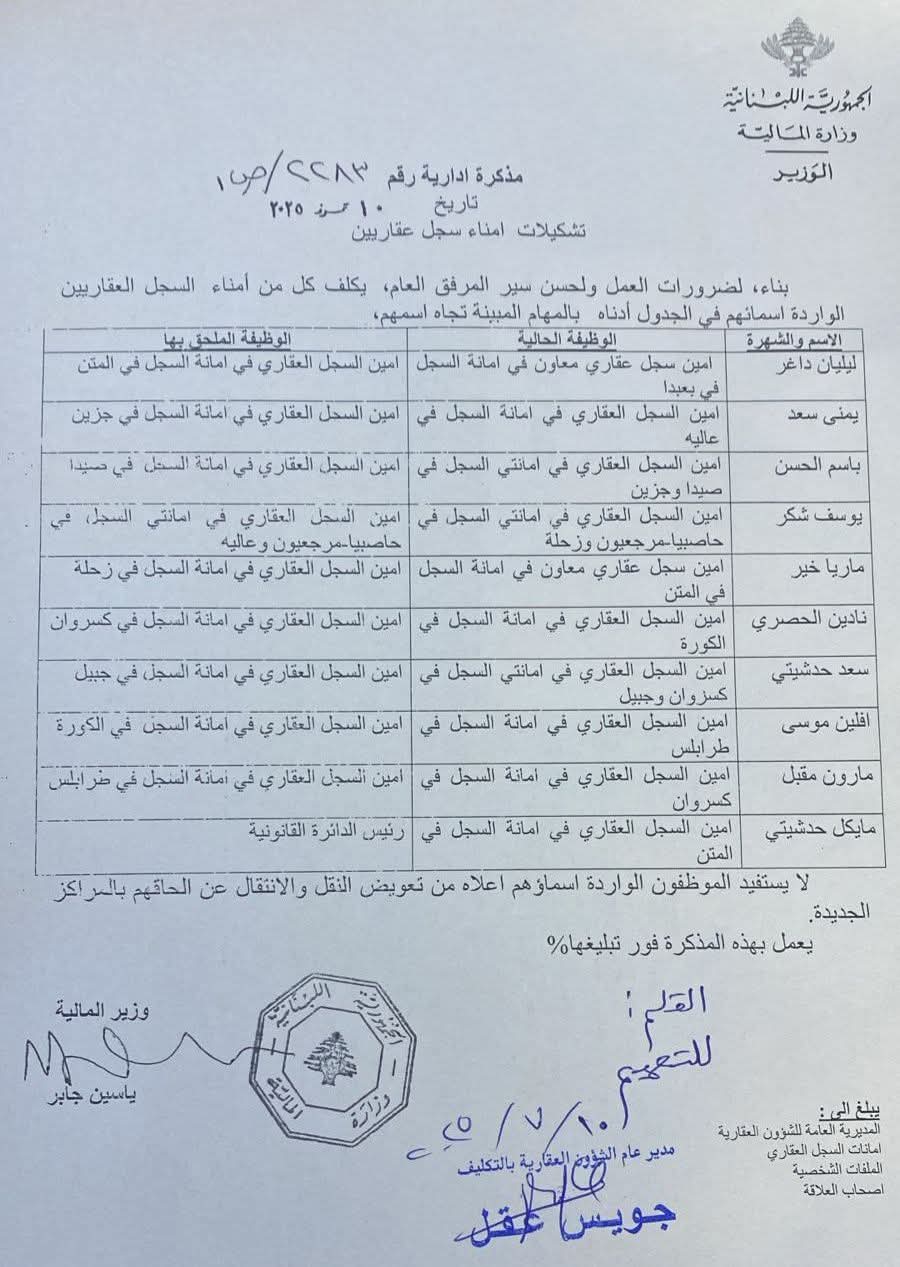 الجمهورية اللبنانية
وزارة المالية
الوزير
مذكرة ادارية رقم ٢٢٨٣/ص١
تاريخ ١٠ تموز ٢٠٢٥
تشكيلات امناء سجل عقاريين
بناء، لضرورات العمل ولحسن سير المرفق العام، يكلف كل من أمناء السجل العقاريين
الواردة اسمائهم في الجدول أدناه بالمهام المبينة تجاه اسمهم،
الاسم والشهرة الوظيفة الحالية الوظيفة الملحق بها
ليليان داغر امين سجل عقاري معاون في امانة السجل امين السجل العقاري في امانة السجل في المتن
في بعبدا
يمنى سعد امين السجل العقاري في امانة السجل في امين السجل العقاري في امانة السجل في جزين
عاليه
باسم الحسن امين السجل العقاري في امانتي السجل في امين السجل العقاري في امانة السجل في صيدا
صيدا وجزين
يوسف شكر امين السجل العقاري في امانتي السجل في امين السجل العقاري في امانتي السجل في
حاصبيا-مرجعيون وزحلة حاصبيا-مرجعيون وعاليه
ماريا خير امين سجل عقاري معاون في امانة السجل امين السجل العقاري في امانة السجل في زحلة
في المتن
نادين الحصري امين السجل العقاري في امانة السجل في امين السجل العقاري في امانة السجل في كسروان
الكورة
سعد حدشيتي امين السجل العقاري في امانتي السجل في امين السجل العقاري في امانة السجل في جبيل
كسروان وجبيل
افلين موسى امين السجل العقاري في امانة السجل في امين السجل العقاري في امانة السجل في الكورة
طرابلس
مارون مقبل امين السجل العقاري في امانة السجل في امين السجل العقاري في امانة السجل في طرابلس
كسروان
مايكل حدشيتي امين السجل العقاري في امانة السجل في رئيس الدائرة القانونية
المتن
لا يستفيد الموظفون الواردة اسماؤهم اعلاه من تعويض النقل والانتقال عن الحاقهم بالمراكز
الجديدة.
يعمل بهذه المذكرة فور تبليغها%
وزير المالية
ياسين جابر
الجمهورية اللبنانية
وزارة المالية
القلم :
للتعميم
٢٥/٧/١٠
مدير عام الشؤون العقارية بالتكليف
جويس عقل
يبلغ الى :
المديرية العامة للشؤون العقارية
امانات السجل العقاري
الملفات الشخصية
اصحاب العلاقة